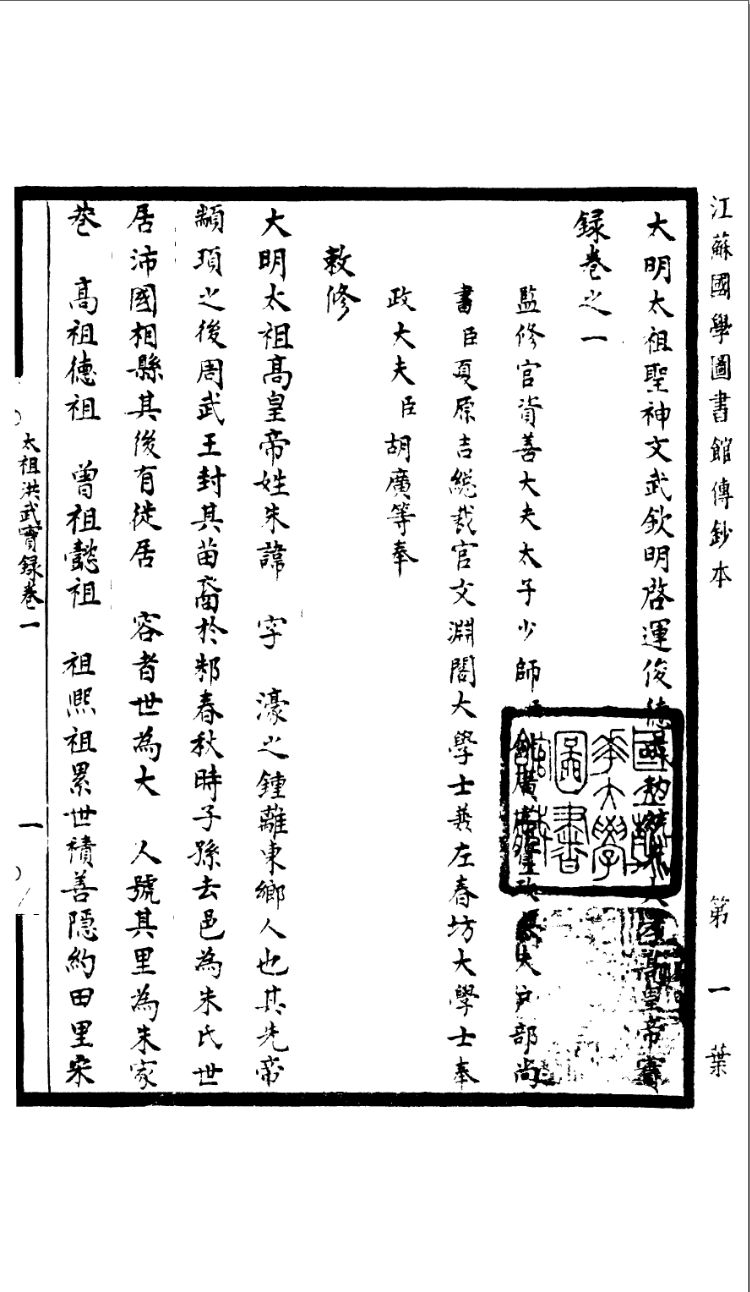 江蘇國學圖書館傳鈔本 第一葉
大明太祖聖神文武欽明啓運俊德成功統天大孝高皇帝實
録卷之一
監修官資善大夫太子少師 大夫戶部尚
書臣夏原吉總裁官文淵閣大學士兼左春坊大學士奉
政大夫臣胡廣等奉
敕修
大明太祖高皇帝姓朱諱 字 濠之鍾離東鄉人也其先帝
顓頊之後周武王封其苗裔於邾春秋時子孫去邑為朱氏世
居沛國相縣其後有徙居 容者世為大 人號其里為朱家
巷 高祖德祖 曾祖懿祖 祖熙祖累世積善隱約田里宋
太祖洪武實録卷一 一
國立 華大學圖書館